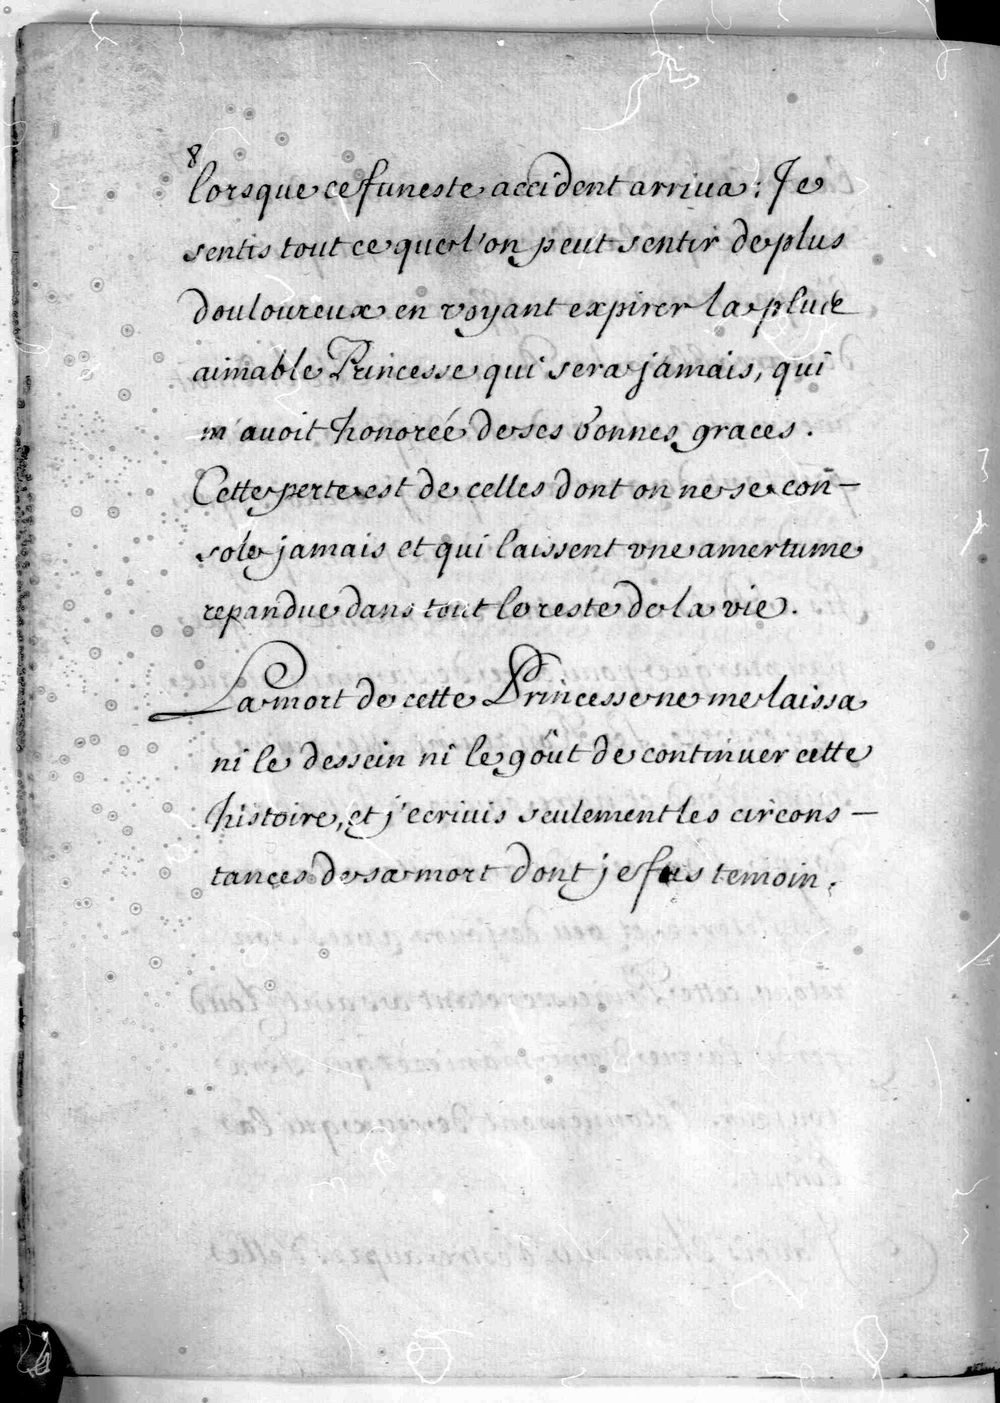 8
lorsque ce funeste accident arriua: Je
sentis tout ce que l'on peut sentir de plus
douloureux en voyant expirer la plus
aimable Princesse qui sera jamais, qui
m'auoit honorée de ses bonnes graces.
Cette perte est de celles dont on ne se con-
sole jamais et qui laissent vne amertume
repandue dans tout le reste de la vie.
La mort de cette Princesse ne me laissa
ni le dessein ni le goût de continuer cette
histoire, et j'ecriuis seulement les circons-
tances de sa mort dont je fus temoin.